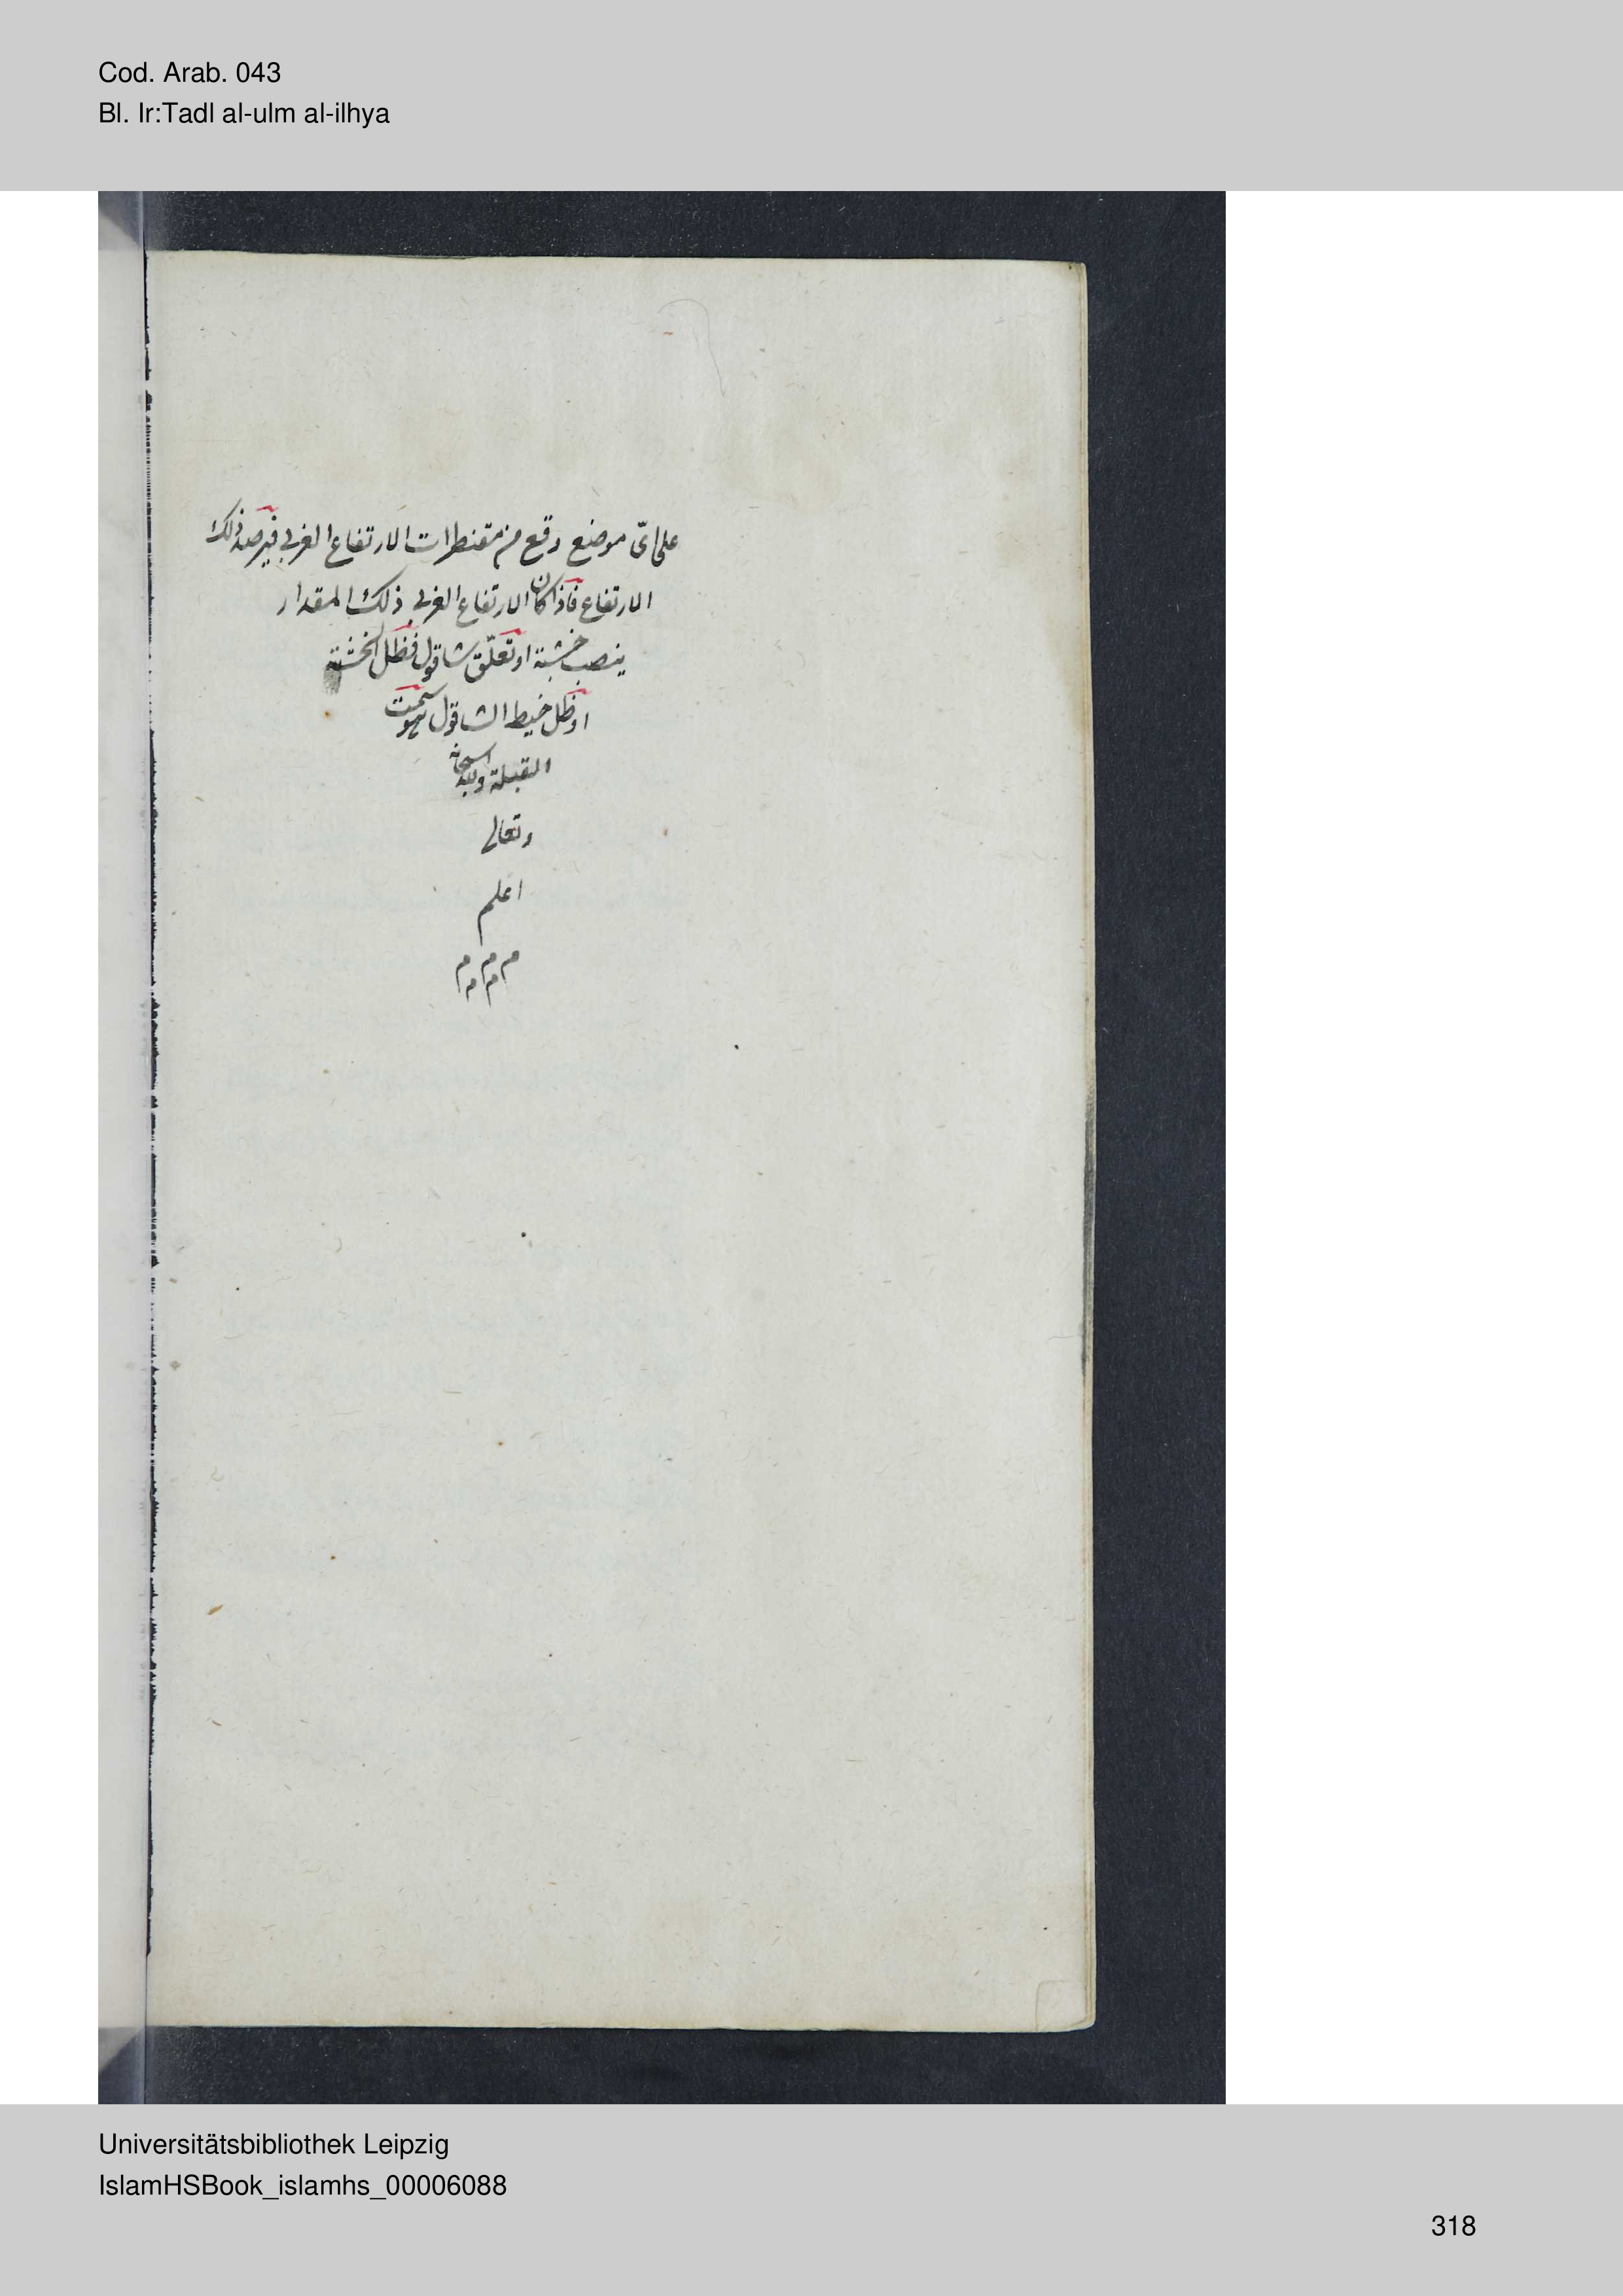 Cod. Arab. 043
Bl. Ir:Tadl al-ulm al-ilhya
على اىّ موضع وقع من مقنطرات الارتفاع الغربى فيرصد ذلك
الارتفاع فاذا كان الارتفاع الغربى ذلك المقدار
ينصب خشبة او تعلّق شاقول فظل الخشبة
او ظل خيط الشاقول سمت
القبلة والله سبحانه
وتعالى
اعلم
م م م م م
Universitätsbibliothek Leipzig
IslamHSBook_islamhs_00006088
318